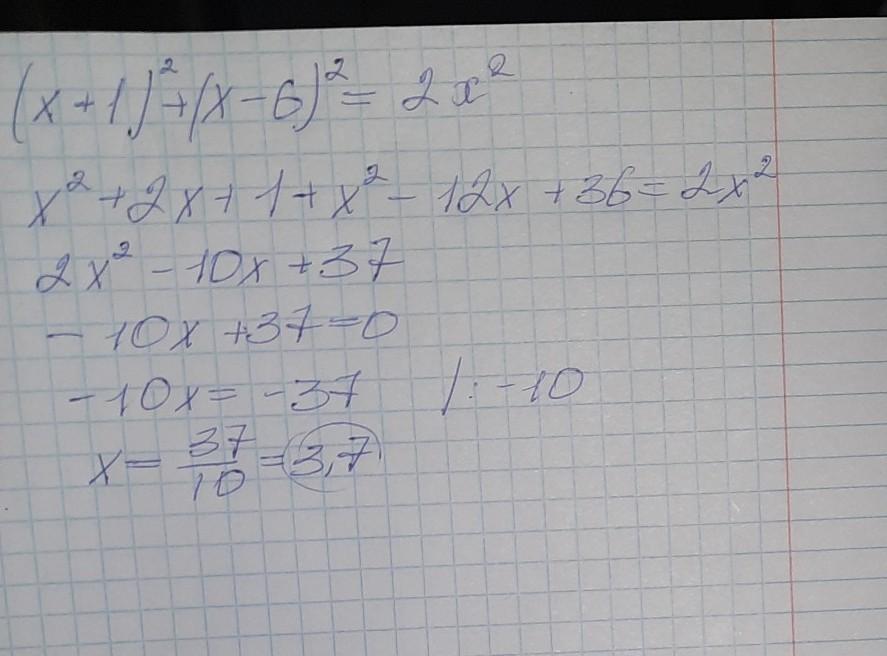 (x+1)²+(x-6)²= 2x²
x²+2x+1+x²-12x+36=2x²
2x²-10x+37
-10x+37=0
-10x=-37 /:-10
x=37/10=3,7